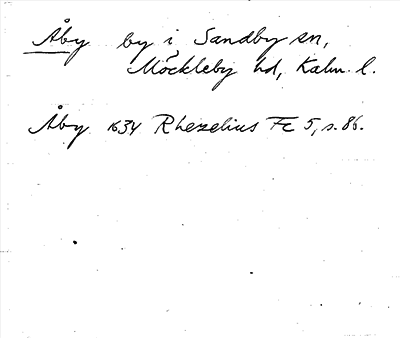 Åby by i Sandby sn,
Möckleby hd, Kalm. l.
Åby 1634 Rhezelius Fc 5, s. 86.